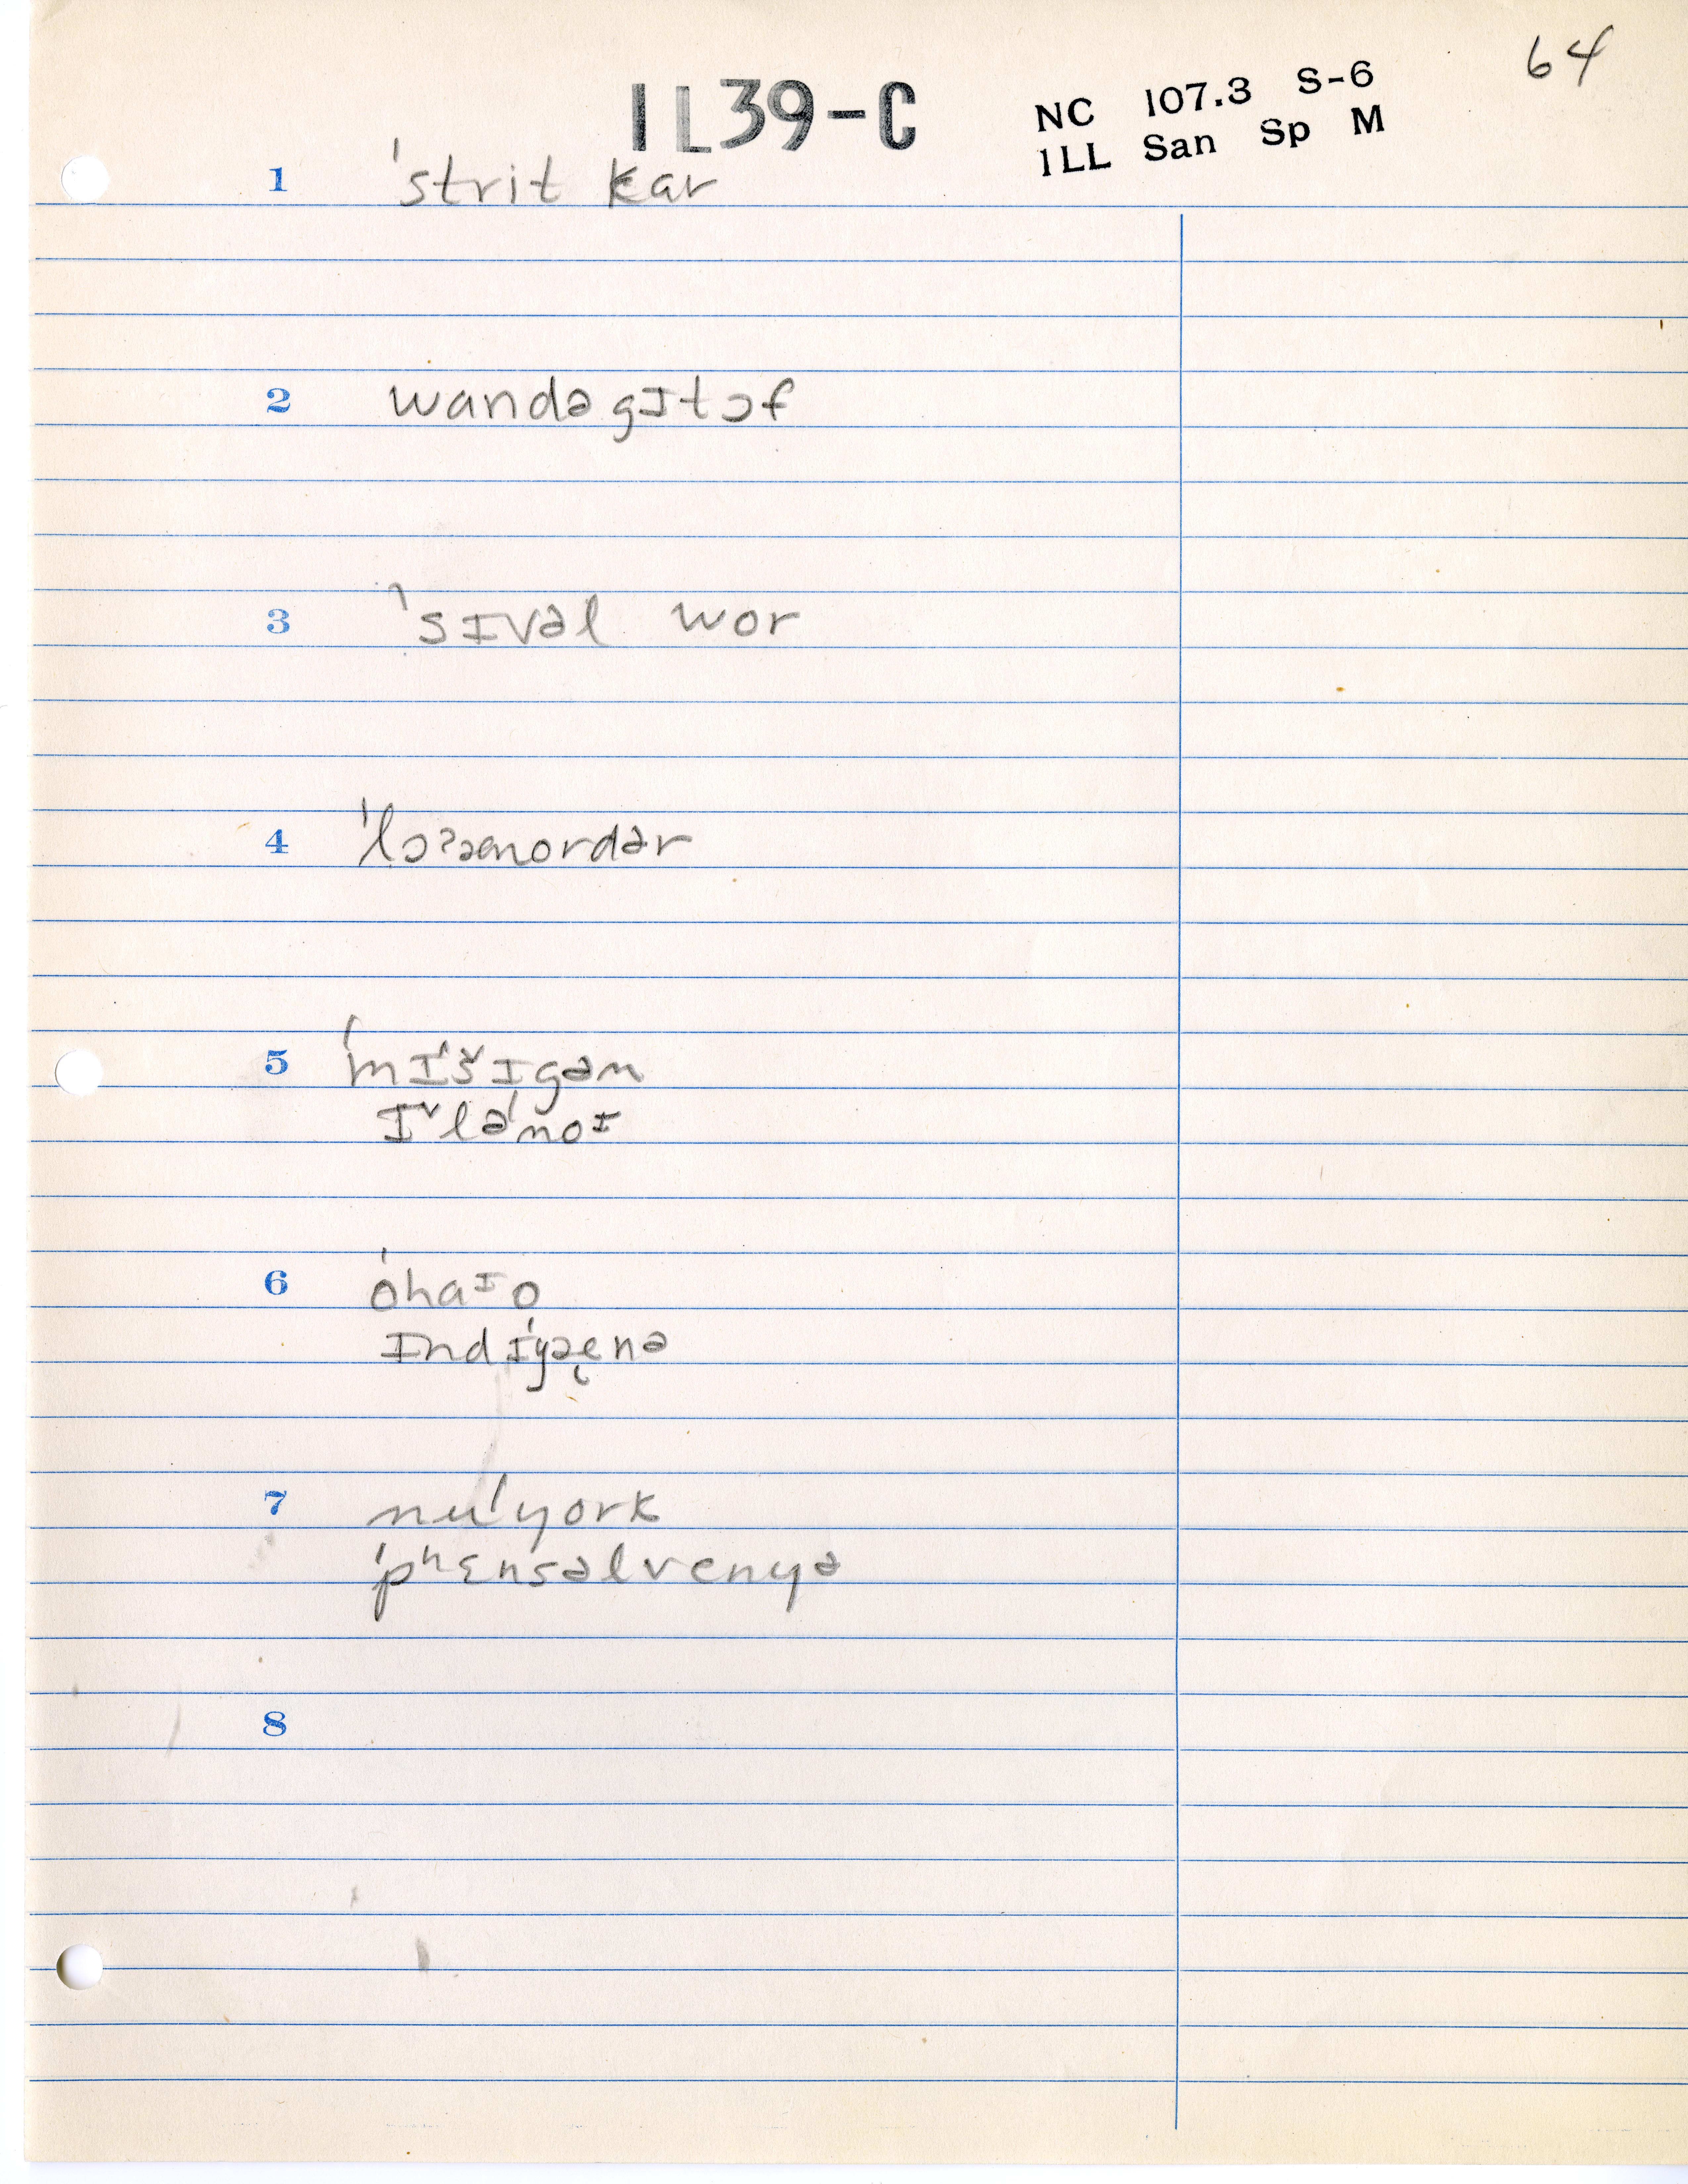 64
1L39-C
NC 107.3 S-6
1LL San Sp M
1 ˈstrit kar
2 wandə gɪtɔf
3 ˈsɪvəl wor
4 ˈlɔʔənordər
5 ˈmɪ́šɪgən
ɪˇləˈnoɪ
6 óhaɪo
ɪndɪ́yæ̨nə
7 nuˈyork
ˈpʰɛnsəlvenyə
8